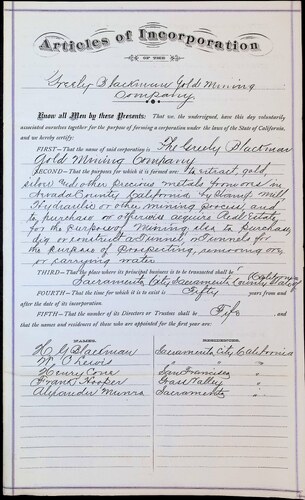 Articles of Incorporation
OF THE
Greely Blackman Gold Mining
Company
Know all Men by these Presents: That we, the undersigned, have this day voluntarily
associated ourselves together for the purpose of forming a corporation under the laws of the State of California,
and we hereby certify:
FIRST—That the name of said corporation is The Greely Blackman
Gold Mining Company
SECOND—That the purposes for which it is formed are To extract, gold,
silver and other precious metals from ores in
Nevada County California by Stamp Mill
Hydraulic or other mining process, and
to purchase or otherwise acquire Real Estate
for the purpose of Mining also to purchase
dig or construct a Tunnel, or Tunnels for
the purpose of Prospecting, removing ore
or carrying water
THIRD—That the place where its principal business is to be transacted shall be California
Sacramento City, Sacramento County State of
FOURTH—That the time for which it is to exist is Fifty years from and
after the date of its incorporation.
FIFTH—That the number of its Directors or Trustees shall be Five and
that the names and residences of those who are appointed for the first year are:
NAMES. RESIDENCES.
H. G. Blackman Sacramento City, California
W. Lewis " "
Henry Cone San Francisco "
Frank Hooper Grass Valley "
Alexander Munro Sacramento "